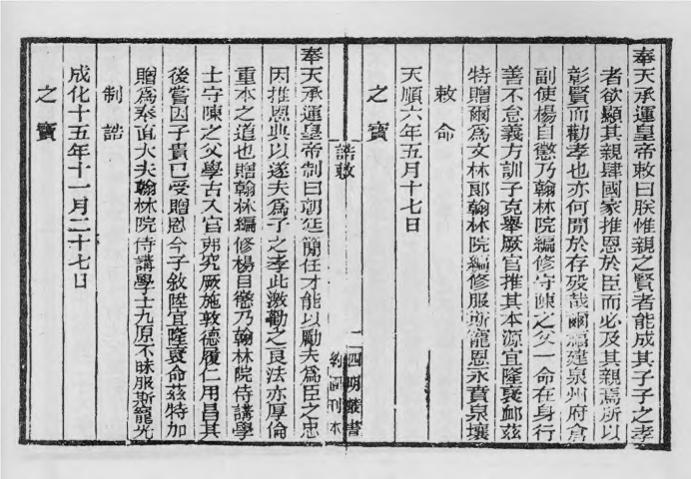 奉天承運皇帝敕曰朕惟親之賢者能成其子子之孝
者欲顯其親肆國家推恩於臣而必及其親焉所以
彰賢而勸孝也亦何間於存歿哉爾福建泉州府倉
副使楊自懲乃翰林院編修守陳之父一命在身行
善不怠義方訓子克舉厥官推其本源宜隆褒卹茲
特贈爾爲文林郎翰林院編修服斯寵恩永賁泉壤
敕命
天順六年五月十七日
之寶
誥敕
二
四明叢書
約園刊本
奉天承運皇帝制曰朝廷簡任才能以勵夫爲臣之忠
因推恩典以遂夫爲子之孝此激勸之良法亦厚倫
重本之道也贈翰林編修楊自懲乃翰林院侍講學
士守陳之父學古入官弗究厥施敦德履仁用昌其
後嘗因子貴已受贈恩今子敘陞宜隆褒命茲特加
贈爲奉直大夫翰林院侍講學士九原不昧服斯寵光
制誥
成化十五年十一月二十七日
之寶